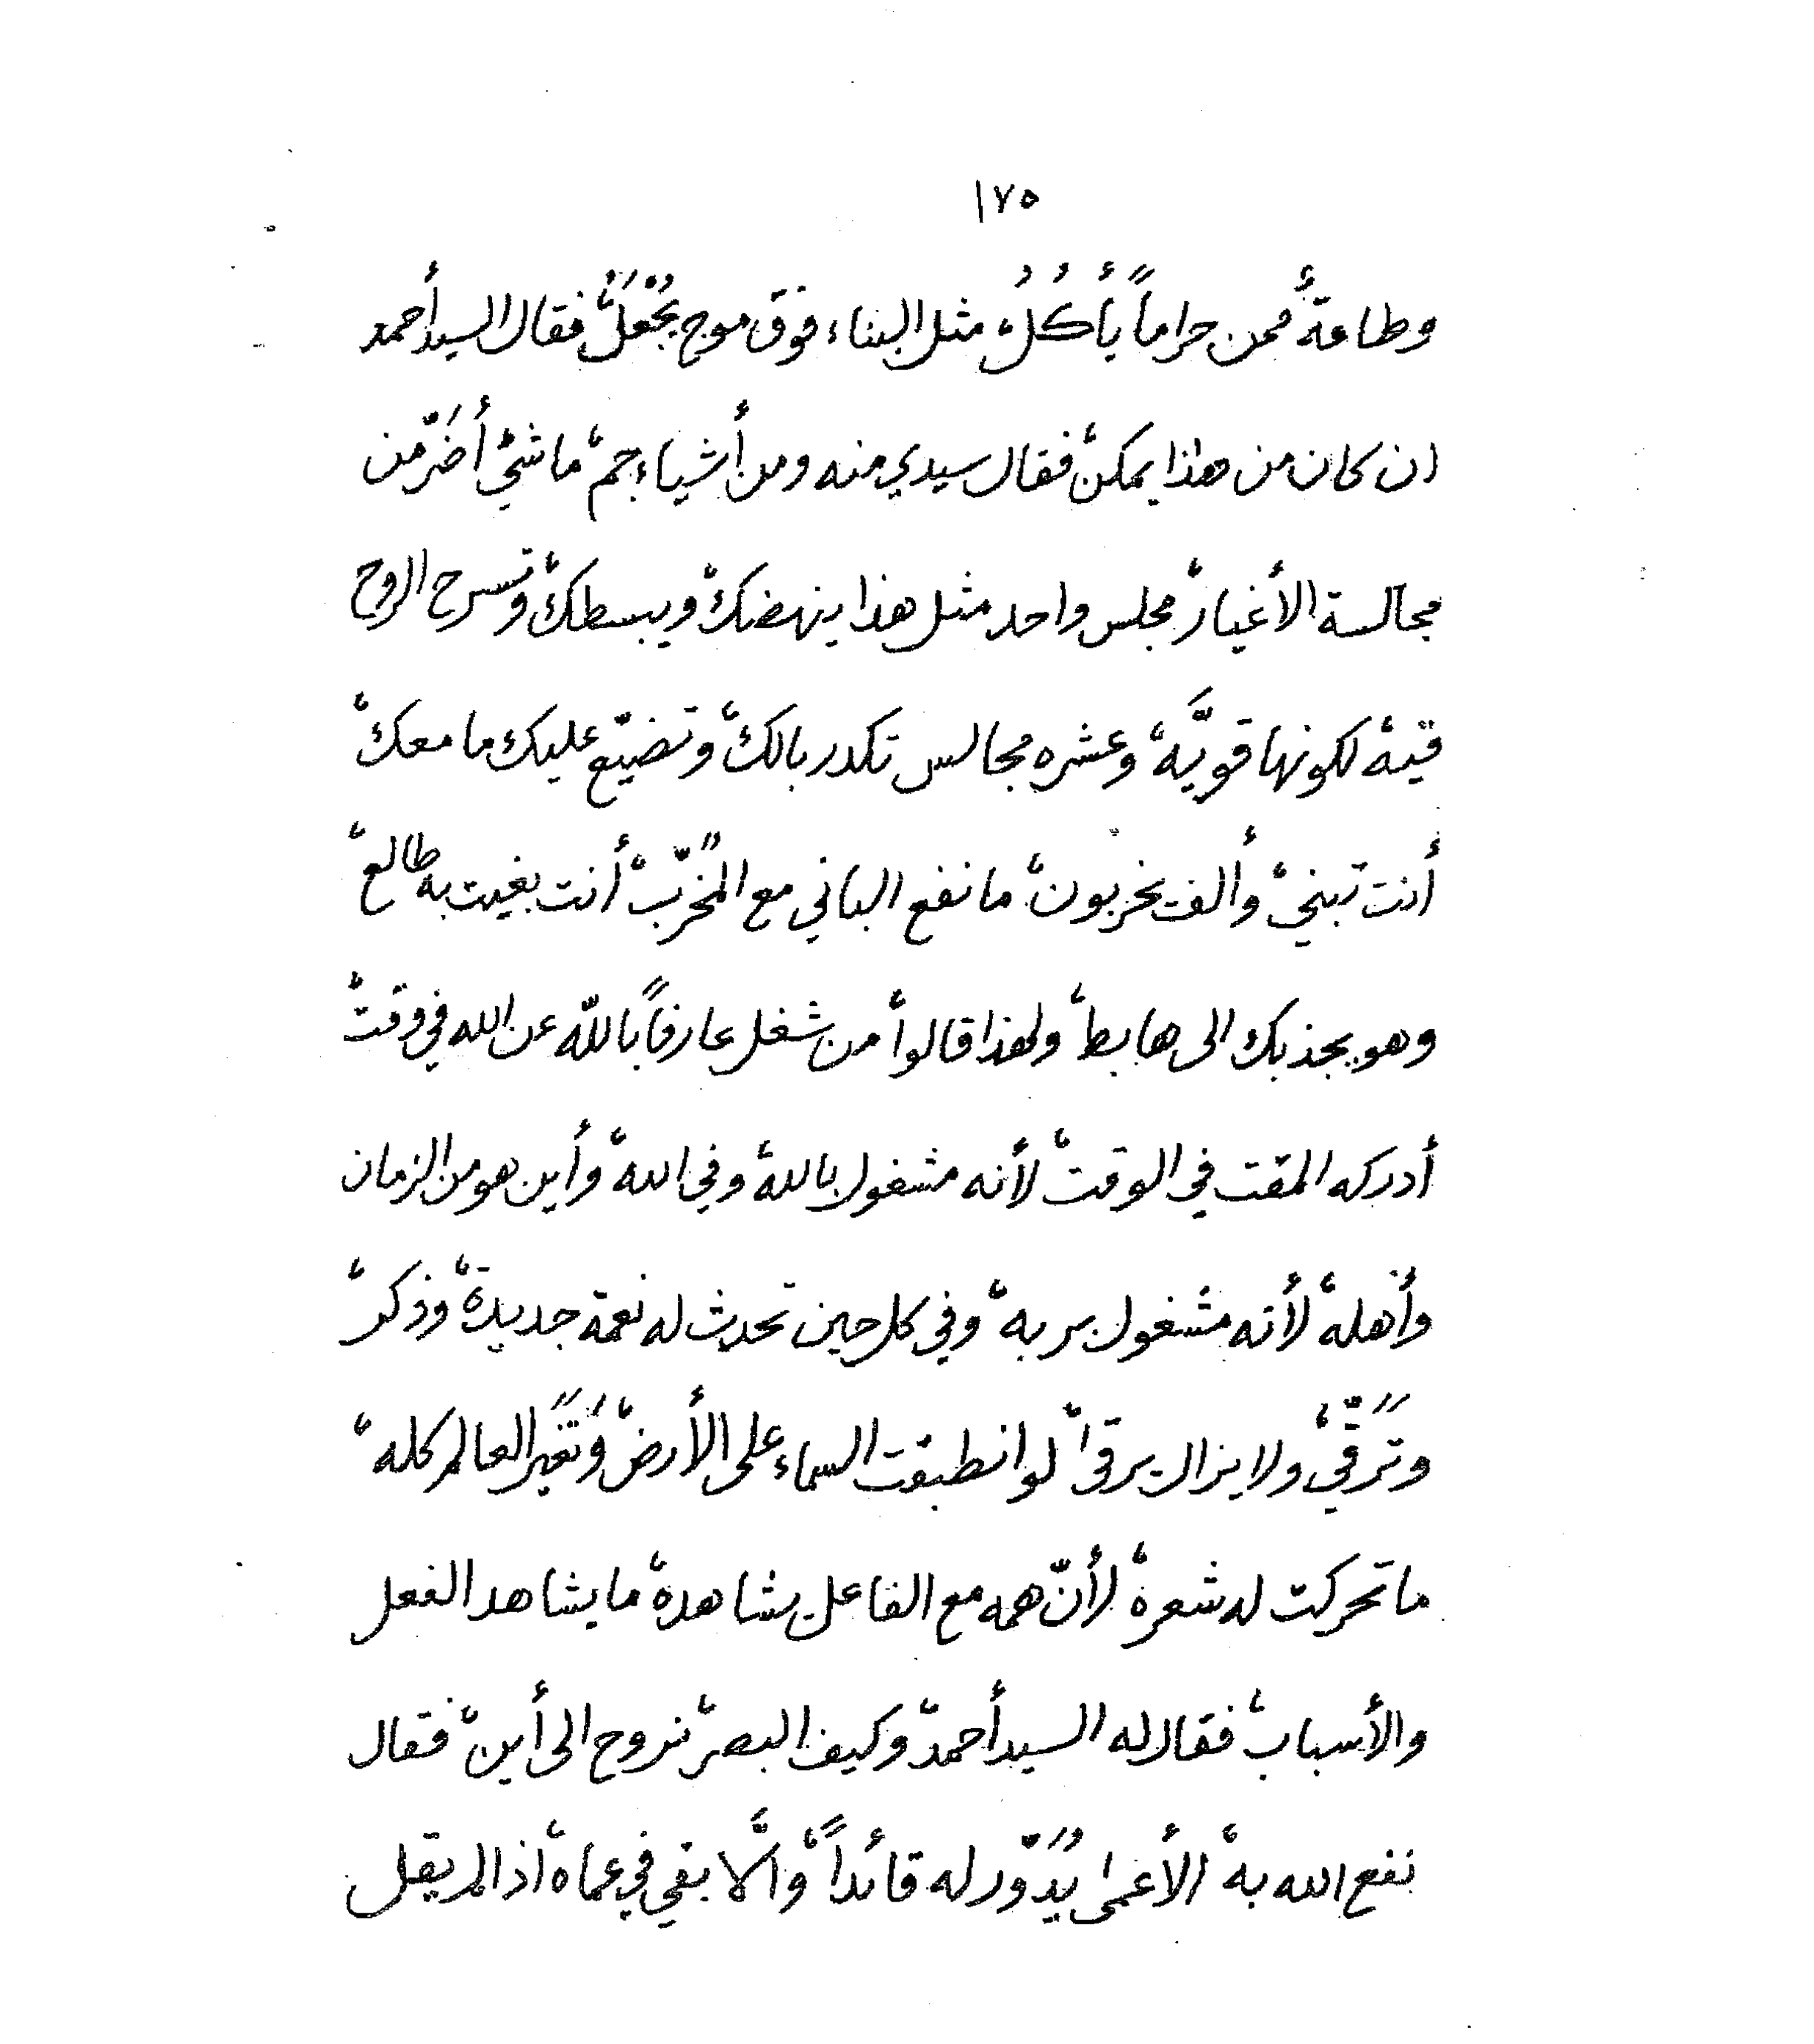 ١٧٥
وطاعةُ ممن حراماً يأكُلُ، مثل البناء فوق موج يُجْعَلُ، فقال السيد أحمد
ان كان من هذا يمكن، فقال سيدي منه ومن أشياء جم، ما شيْ أضَرّ من
مجالسة الأغيار، مجلس واحد مثل هذا ينهضك، ويبسطك، وتسرح الروح
فيه، لكونها قويَّه، وعشره مجالس تكدر بالك، وتضيّع عليك ما معك،
أنت تبني، وألف يخربون، ما نفع الباني مع المُخَرّب، أنت بغيت به طالع،
وهو يجذبك الى هابط، ولهذا قالوا، من شغل عارفاً بالله عن الله في وقت،
أدركه المقت في الوقت، لأنه مشغول بالله، وفي الله، وأين هو من الزمان
وأهله، لأنه مشغول بربه، وفي كل حين تحدث له نعمة جديدة، وذكر،
وتَرَقّيْ، ولا يزال يرقى، لو انطبقت السماء على الأرض، وَتَغَيَّر العالم كله،
ما تحركت له شعرة، لأنّ همه مع الفاعل يشاهده، ما يشاهد الفعل
والأسباب، فقال له السيد أحمد، وكيف البصر، نروح الى أين، فقال
نفع الله به، الأعمى يُدَوّر له قائداً، والَّا بقي في عماه، اذا لم يقل